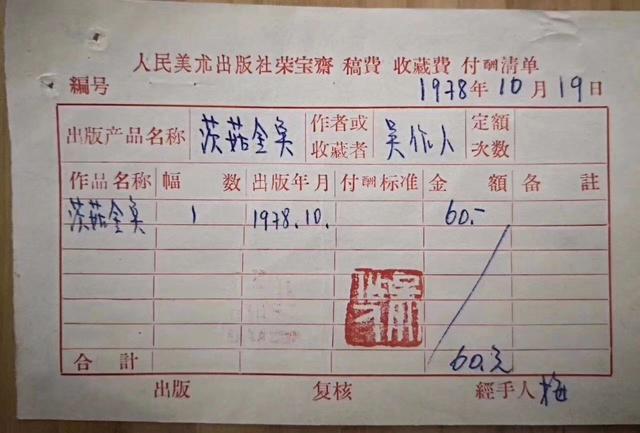 人民美术出版社荣宝齋 稿費 收藏費 付酬清单
編号 1978年10月19日
出版产品名称 茨菇金魚 作者或收藏者 吴作人 定額次数
作品名称 幅数 出版年月 付酬标准 金額 备註
茨菇金魚 1 1978.10. 60.-
合計 60.元
出版 复核 經手人 梅